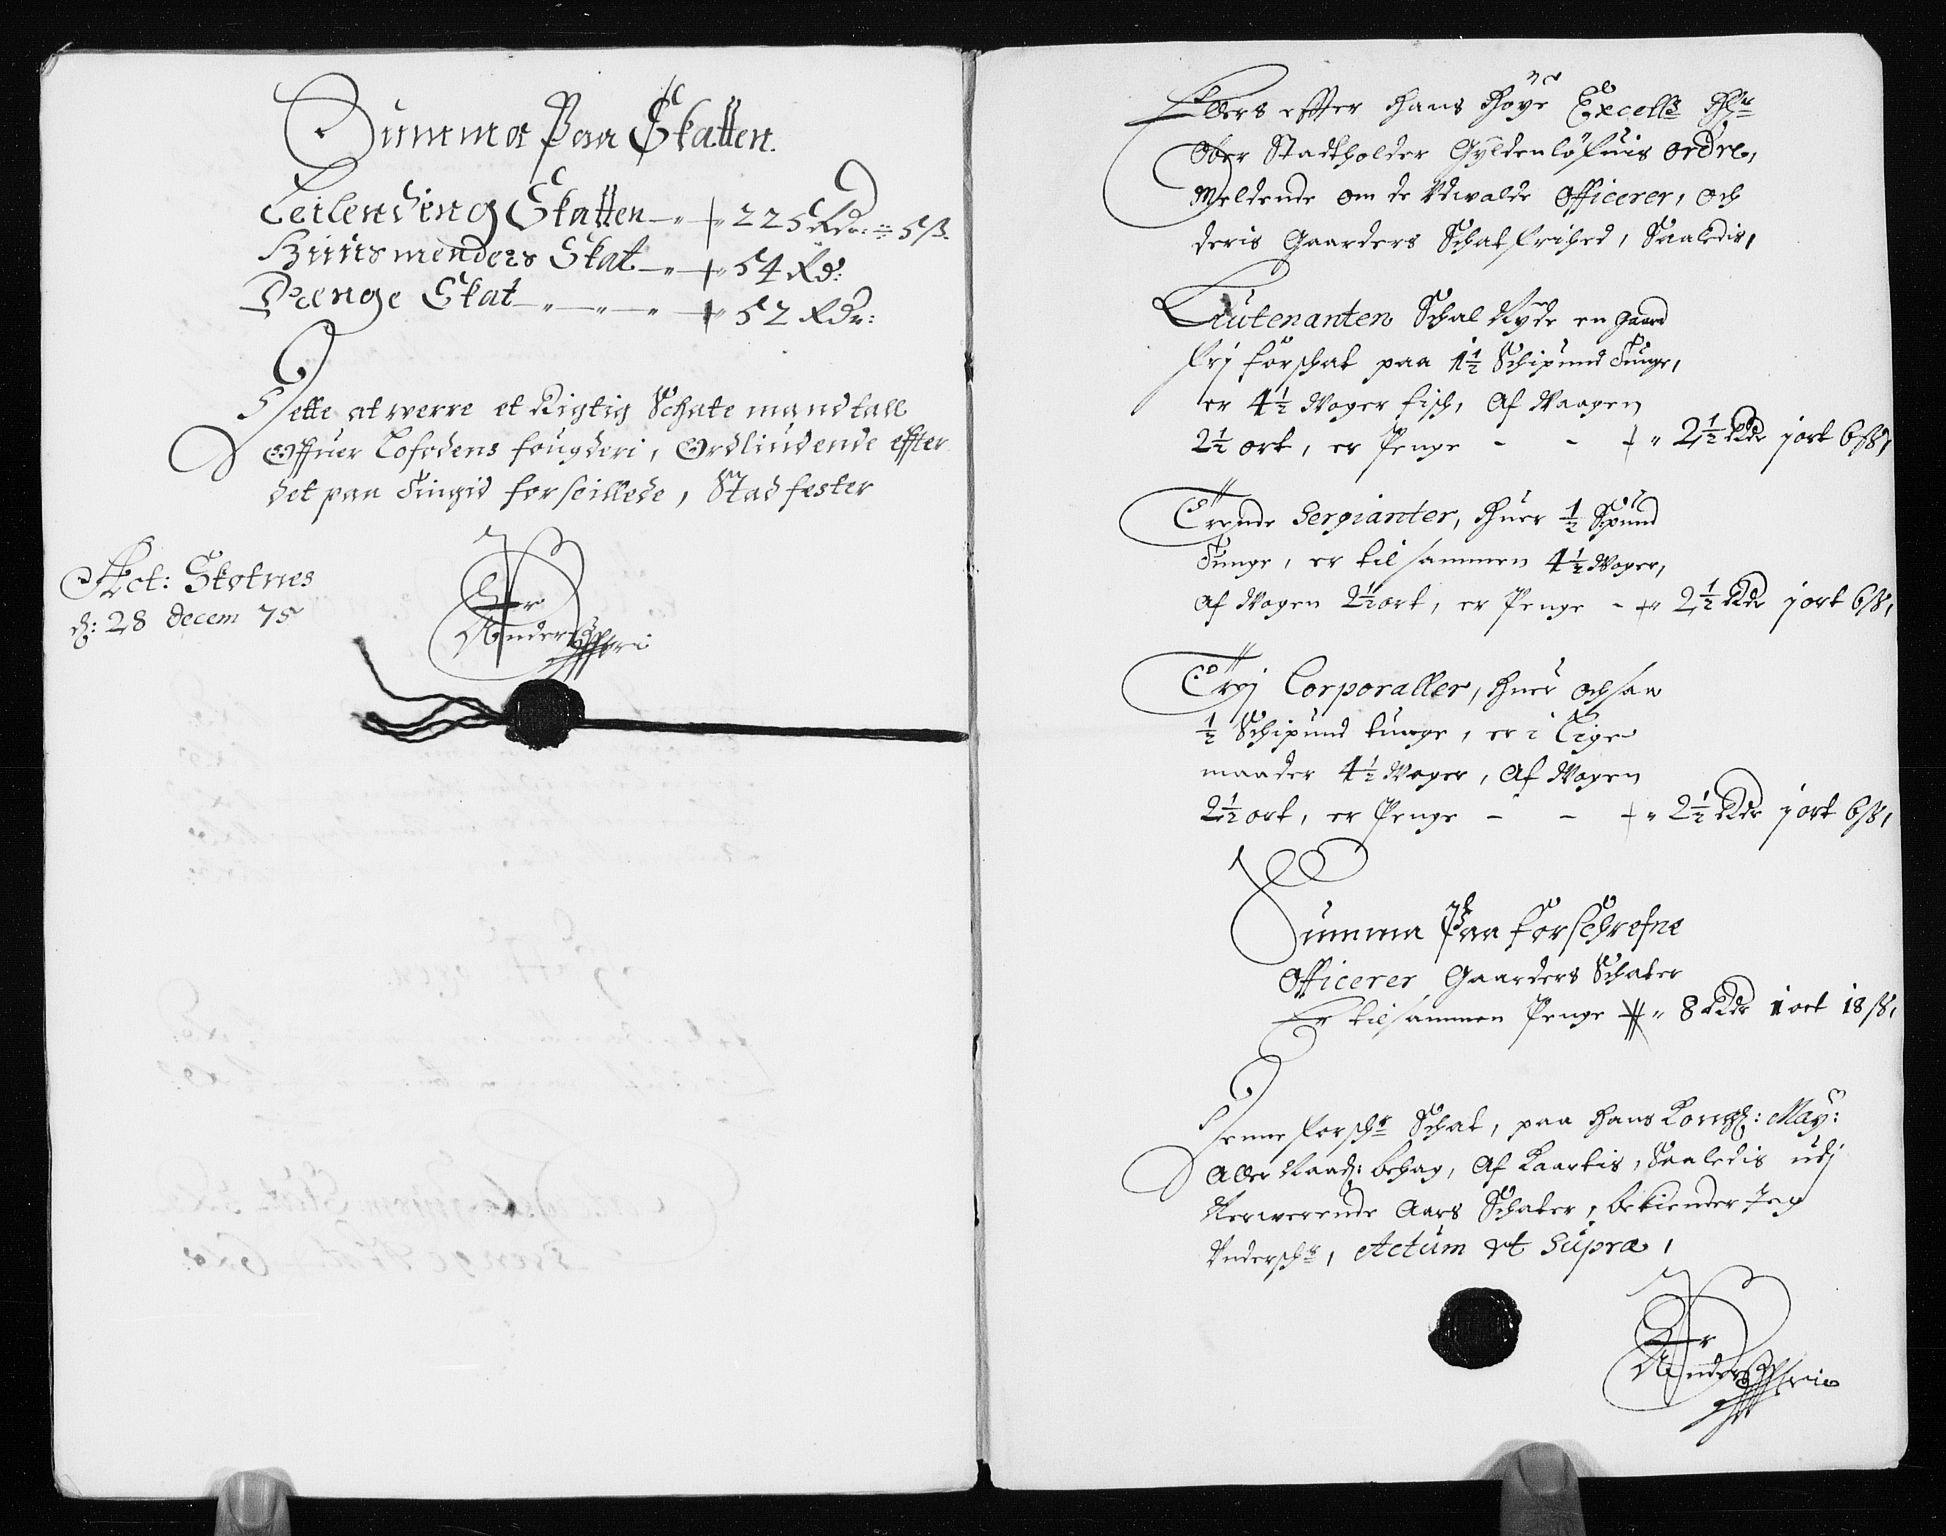 Summa Paa Skatten.
Leilending Skatten — " — 225 Rdr: ÷ 5 ß
Huusmenders Skat — " — 54 Rd:
Drenge Skat — " — " — " — 52 Rdr:
Dette at werre et Rigtig Schatte mandtall
Offuer Lofodens fougderi, Ordliudende effter
det paa Tingid forseillede, Stadfester
Act: Skotnes
d: 28 decem 75
Peder
Anders
Ellers effter Hans Høye Excell: Hr
Ober Stadtholder Gyldenløfuis ordre,
Meldende om de Udwalde Officerer, och
deris Gaarders Schat frihed, Saaledis,
Lieutenanten Schal Nyde en gaard
frj for schat paa 1½ Schipund Tunge,
er 4½ Woger fisch, Af Waagen
2½ ort, er Penge - - " 2½ Rdr j ort 6 ß,
Trende Sergianter, Huer ½ Spund
Tunge, er tilsammen 4½ Woger,
Af Wogen 2½ ort, er Penge - " 2½ Rdr j ort 6 ß,
Trej Corporaller, Huer ochsaa
½ Schipund tunge, er i Lige
maader 4½ Woger, Af Wogen
2½ ort, er Penge - - " 2½ Rdr j ort 6 ß,
Summa Paa forschrefne
Officerer Gaarders Schater
Er tilsammen Penge " 8 Rdr 1 ort 18 ß,
Denne forschr Schat, paa Hans Kongl: May:
Aller Naad: behag, Af Kaartis, Saaledis udj
Nerwerende Aars Schater, bekiender Jeg
Underschr, Actum Ut Supra,
Peder
Anders